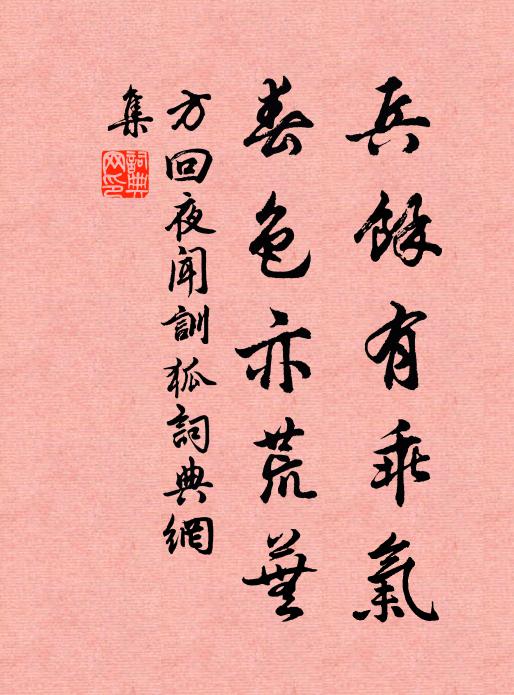 兵餘有乖氣
春色亦荒蕪
方回夜聞訓狐詞典網
集
詞典網印